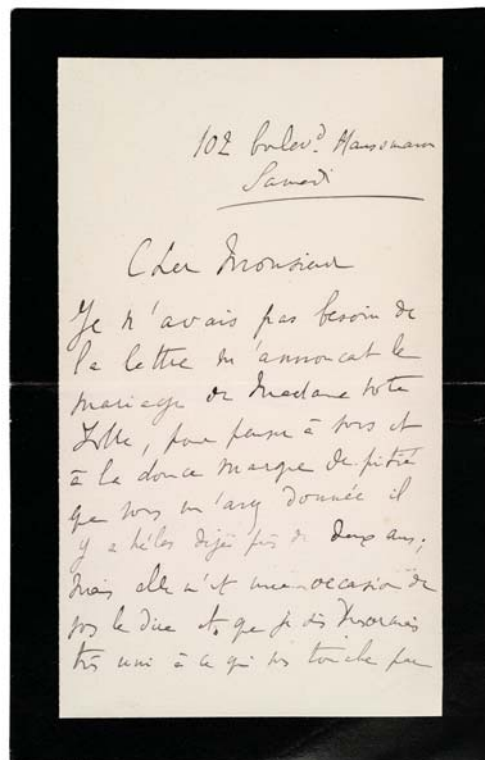 102 boulevd. Haussmann
Samedi
Cher Monsieur
Je n'avais pas besoin de
la lettre m'annonçat le
mariage de Madame votre
fille, pour penser à vous et
à la douce marque de pitié
que vous m'avez donnée il
y a hélas déjà près de deux ans;
mais elle m'est une occasion de
vous le dire et que je suis désormais
très uni à ce qui vous touche par